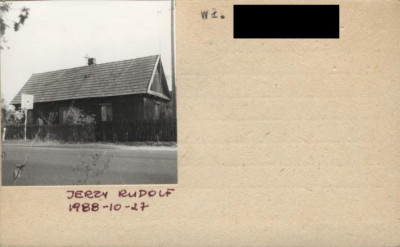 wł.
JERZY RUDOLF
1988-10-27